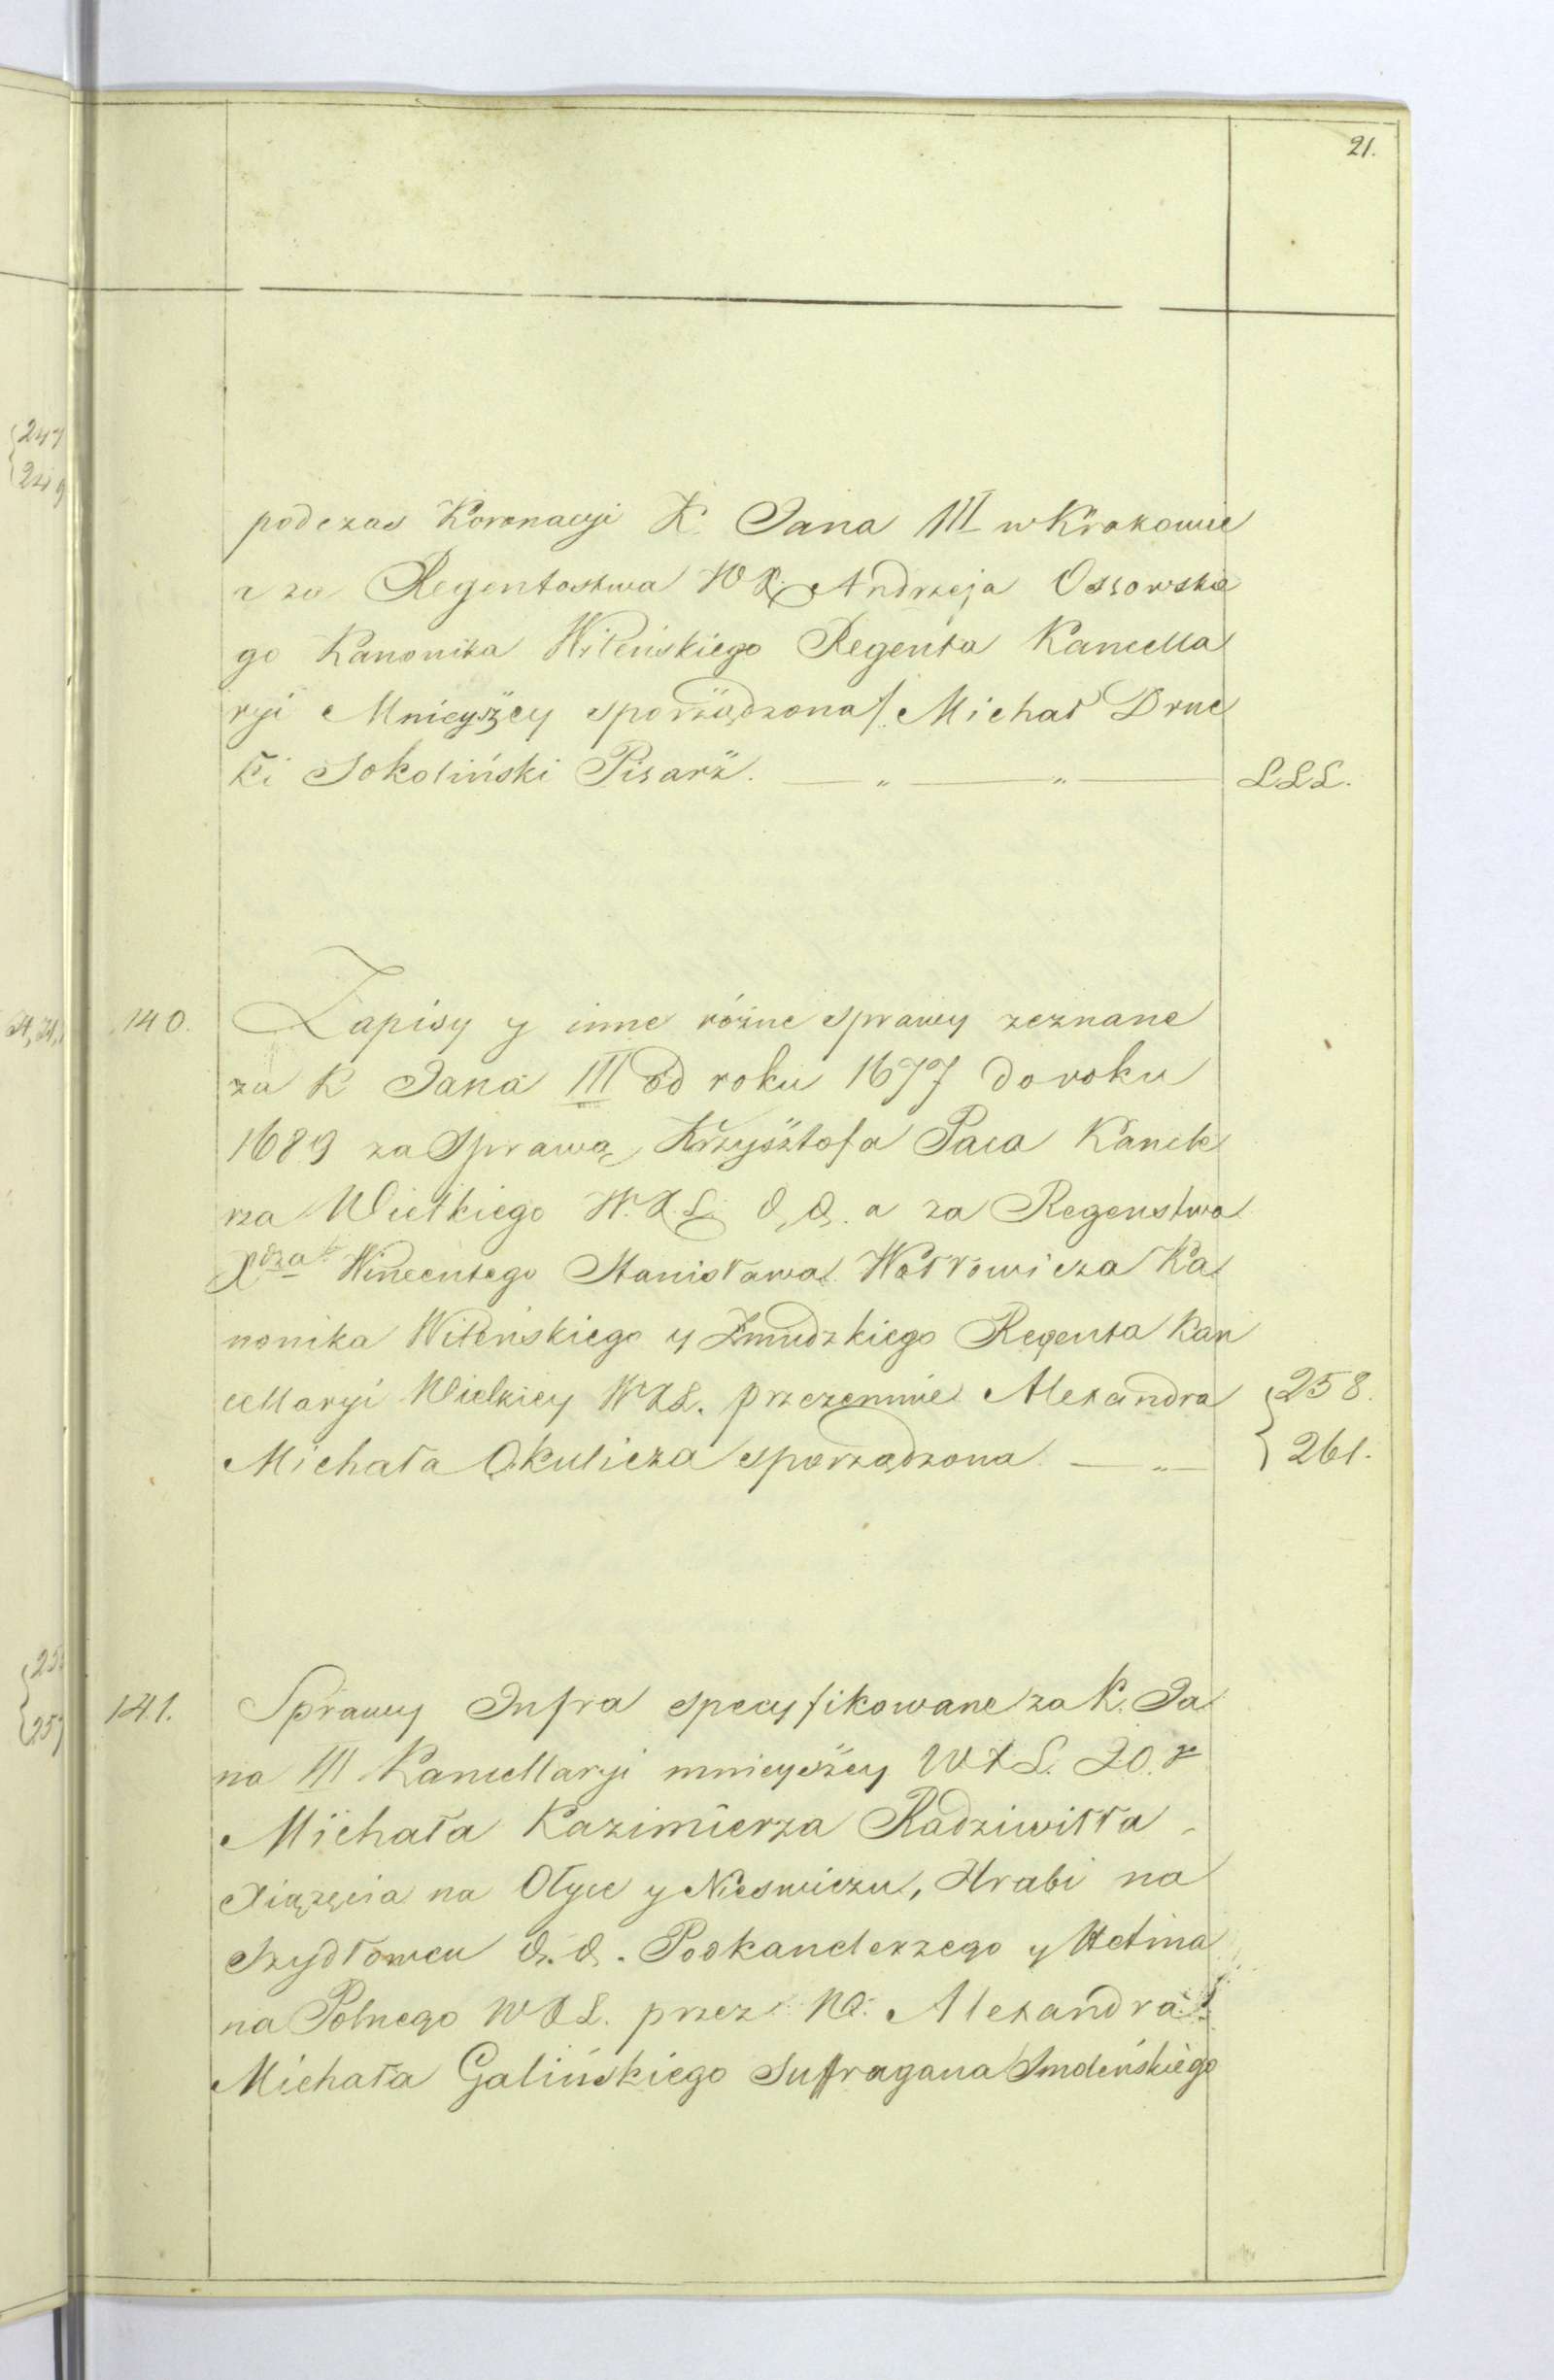 21.
podczas Koronacyi K. Jana III w Krakowie
a za Regentostwa W X Andrzeja Ossowskie
go Kanonika Wileńskiego Regenta Kancella
ryi Mnieyszey sporządzona/. Michał Druc
ki Sokoliński Pisarz. — „ — „ — LLL.
140. Zapisy y inne różne sprawy zeznane
za K Jana III od roku 1677 do roku
1689 za Sprawą Krzysztofa Paca Kancle
rza Wielkiego W. X. L. &. &. a za Regenstwa
Xdza Wincentego Stanisława Wołłowicza Ka
nonika Wileńskiego y Żmudzkiego Regenta Kan
cellaryi Wielkiey W X L. przezemnie Alexandra 258.
Michała Okulicza sporządzona. — „ — 261.
141. Sprawy Infra specyfikowane za K. Ja
na III Kancellaryi mnieyszey W X L. JO. X
Michała Kazimierza Radziwiłła
Xiążęcia na Ołyce y Nieswiezu, Hrabi na
Szydłowcu &. &. Podkanclerzego y Hetma
na Polnego W X L. przez Alexandra
Michała Galińskiego Suffragana Smoleńskiego
247
249